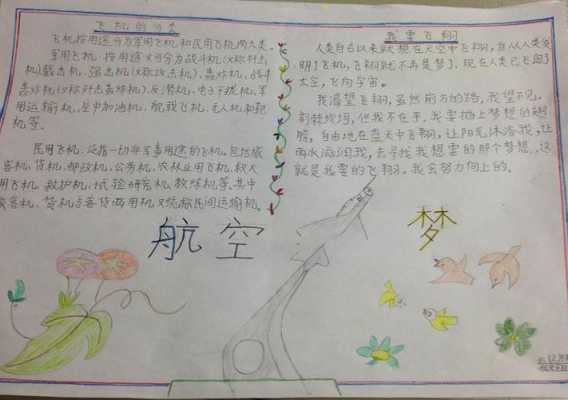 飞机的分类
飞机按用途分为军用飞机和民用飞机两大类。
军用飞机,按用途又可分为战斗机(又称歼击
机)截击机、强击机(又称攻击机)、轰炸机、战斗
轰炸机(又称歼击轰炸机)、反潜机、电子干扰机、军
用运输机、空中加油机、舰载飞机、无人机和靶
机等。
民用飞机,泛指一切非军事用途的飞机,包括旅
客机、货机、邮政机、公务机、农林业用飞机、救火
用飞机、救护机、试验研究机、教练机等。其中
旅客机、货机与客货两用机又统称民间运输机。
我要飞翔
人类自古以来就想在天空中飞翔,自从人类发
明了飞机,飞翔就不再是梦了,现在人类已飞向了
太空,飞向宇宙。
我渴望飞翔,虽然前方的路,我望不见,
荆棘缠绕,但我不在乎,我要插上梦想的翅
膀,自由地在蓝天中飞翔,让阳光沐浴我,让
雨水滋润我,去寻找我想要的那个梦想。这
就是我要的飞翔。我会努力向上的。
航空
梦